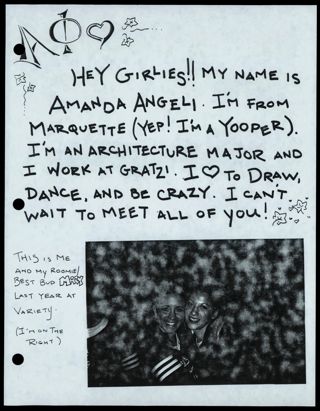 ΑΦ♡
HEY GIRLIES!! MY NAME IS
AMANDA ANGELI. I'M FROM
MARQUETTE (YEP! I'M A YOOPER).
I'M AN ARCHITECTURE MAJOR AND
I WORK AT GRATZI. I ♡ TO DRAW,
DANCE, AND BE CRAZY. I CAN'T
WAIT TO MEET ALL OF YOU!
THIS IS ME
AND MY ROOMIE/
BEST BUD
LAST YEAR AT
VARIETY.
(I'M ON THE
RIGHT)